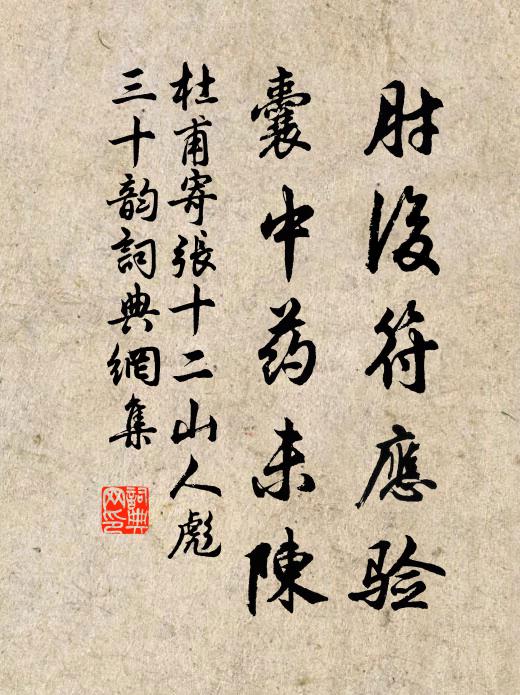 肘後符應验
囊中药未陳
杜甫寄張十二山人彪
三十韵詞典網集
詞典網印